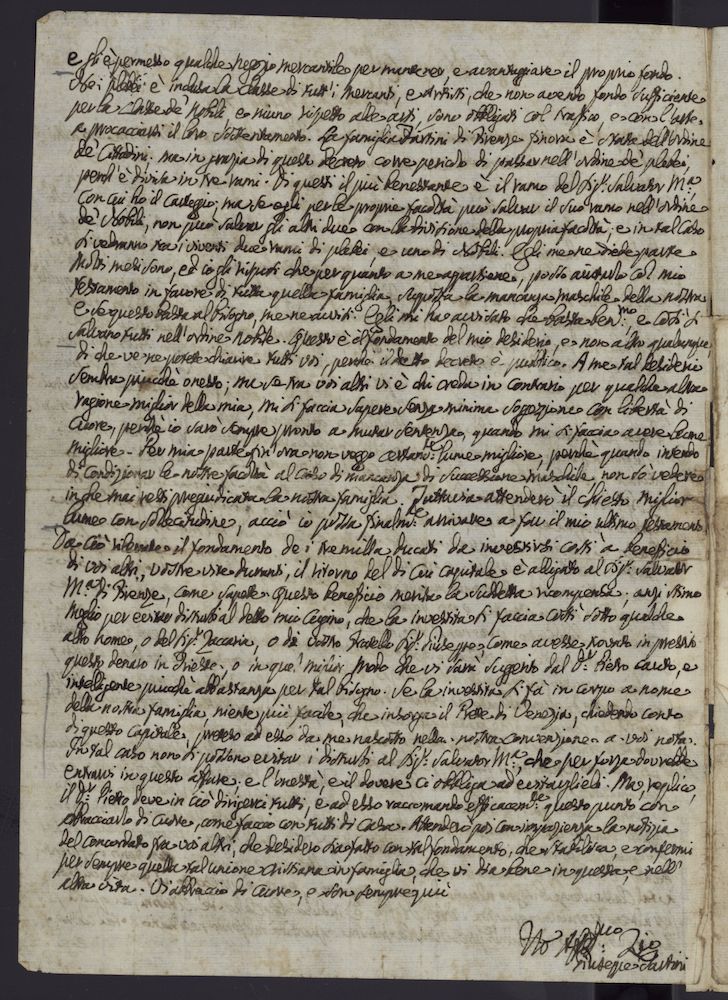 e gli è permesso qualche negozio mercantile per mantener, e avantaggiare il proprio fondo.
Ne i plebei è inclusa la Classe di tutt'i Mercanti, e Artisti, che non avendo fondo sufficiente
per la Classe de' Nobili, e niuno rispetto alle arti, sono obbligati col traffico, e con l'arte
a procacciarsi il loro sostentamento. La famiglia Tartini di Firenze finora è stata dell'ordine
de' Cittadini, ma in grazia di questo decreto corre pericolo di passar nell'ordine de' plebei,
perch'è divisa in tre rami. Di questi il più benestante è il ramo del Sig.r Salvator M.a
con cui ho il carteggio; ma se egli per le proprie facoltà può salvar il suo ramo nell'ordine
de' Nobili, non può salvar gli altri due con la divisione della propria facoltà; e in tal caso
si vedranno tra i viventi due rami di plebei, e uno di Nobili. Egli me ne diede parte
molti mesi sono, ed io gli risposi che per quanto a me appartiene, posso aiutarlo col mio
testamento in favore di tutta quella famiglia, supposta la mancanza maschile della nostra
e se questo basta al bisogno, me ne avvisi. Egli mi ha avvisato che basta ben.mo, e così si
salvano tutti nell'ordine nobile. Questo è il fondamento del mio desiderio, e non altro qualunque,
di che ve ne potete chiarire tutti voi, perchè il detto decreto è pubblico. A me tal desiderio
sembra più che onesto; ma se tra voi altri vi è chi creda in contrario per qualche altra
ragione miglior della mia, mi si faccia sapere senza minima soggezione con libertà di
cuore, perchè io sarò sempre pronto a mutar sentenza, quando mi si faccia avere lume
migliore. Per mia parte fin ora non vego certam.te lume migliore, perchè quando intendo
di condizionar le nostre facoltà al caso di mancanza di successione maschile, non so vedere
in che mai resti pregiudicata la nostra famiglia. Tuttavia attenderò il chiesto miglior
lume con sollecitudine, acciò io possa finalm.te arrivare a far il mio ultimo testamento.
Da ciò rilevate il fondamento de i tremilla ducati da investirsi costì a beneficio
di voi altri, vostre vite duranti, il ritorno del di cui capitale è allegato al Sig.r Salvator
M.a di Firenze, come sapete. Questo beneficio merita la suddetta ricompensa; anzi stimo
meglio per evitar disturbi al detto mio Cugino, che la investita si faccia costì sotto qualche
altro nome, o del Sig.r Zaccaria, o di vostro fratello Sig.r Giuseppe, come avesse trovato in prestito
questo denaro in Trieste, o in que' miglior modo che vi sarà suggerito dal D.r Pietro cauto, e
inteligente più che abbastanza per tal bisogno. Se la investita si fa in corpo a nome
della nostra famiglia, niente più facile, che insorga il Prete di Venezia, chiedendo conto
di questo capitale, presso ad esso da me nascosto nella nostra convenzione a voi nota.
In tal caso non si possono evitar i disturbi al Sig.r Salvator M.a che per forza dovrebbe
entrarvi in questo affare; e l'onestà, e il dovere ci obbliga ad evitarglieli. Ma, replico,
il D.r Pietro deve in ciò dirigerci tutti, e ad esso raccomando efficacem.te questo punto con
abbracciarlo di cuore, come faccio con tutti di casa. Attenderò poi con impazienza la notizia
del concordato fra voi altri, che desidero sia fatto con tal fondamento, che stabilisca e confermi
per sempre quella tal unione cristiana in famiglia, che vi dia bene in questa, e nell'
altra vita. Vi abbraccio di cuore, e son sempre più
Vro Aff.mo Zio
Giuseppe Tartini